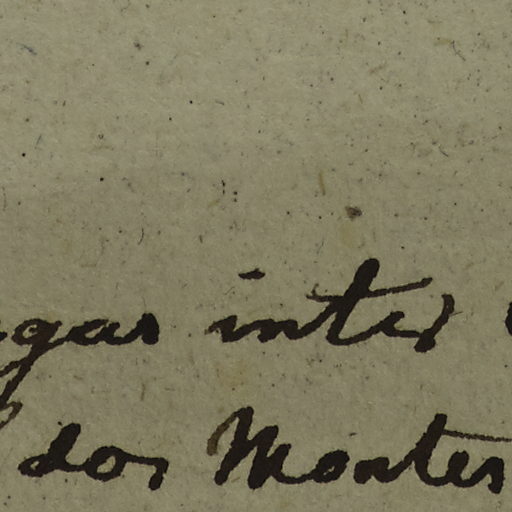 gas inter
dos Montes